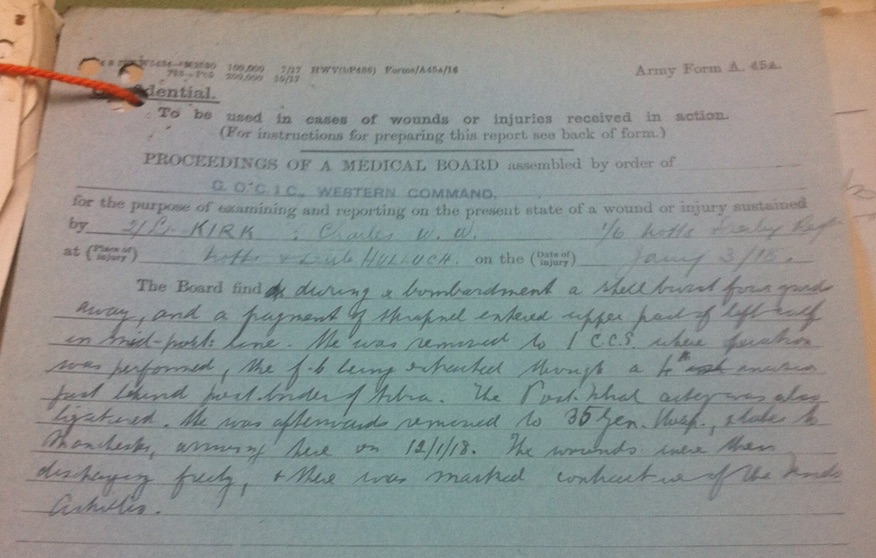 100,000 7/17 HWV(P486) Forms/A45A/16
200,000 10/17
Army Form A. 45A.
dential.
To be used in cases of wounds or injuries received in action.
(For instructions for preparing this report see back of form.)
PROCEEDINGS OF A MEDICAL BOARD assembled by order of
G.O.C.IC., WESTERN COMMAND.
for the purpose of examining and reporting on the present state of a wound or injury sustained
by 2/Lt KIRK : Charles W. W. 1/6 Notts & Derby Regt
at (Place of injury) HULLUCH. on the (Date of injury) Jany 3/18.
The Board find during a bombardment a shell burst four yards
away, and a fragment of shrapnel entered upper part of left calf
in mid-post: line. He was removed to 1 C.C.S. where
was performed, the f-b being extracted through a 4"
just behind post. border of tibia. The Post. tibial artery was also
ligatured. He was afterwards removed to 35 Gen. Hosp., & later to
Manchester, arriving here on 12/1/18. The wounds were then
discharging freely, & there was marked contracture of the tendo
Achilles.